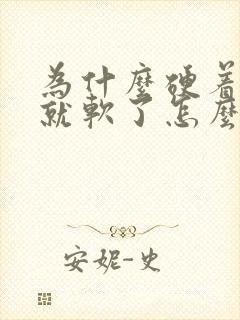 為什麼硬着
就軟了怎麼
安妮-史